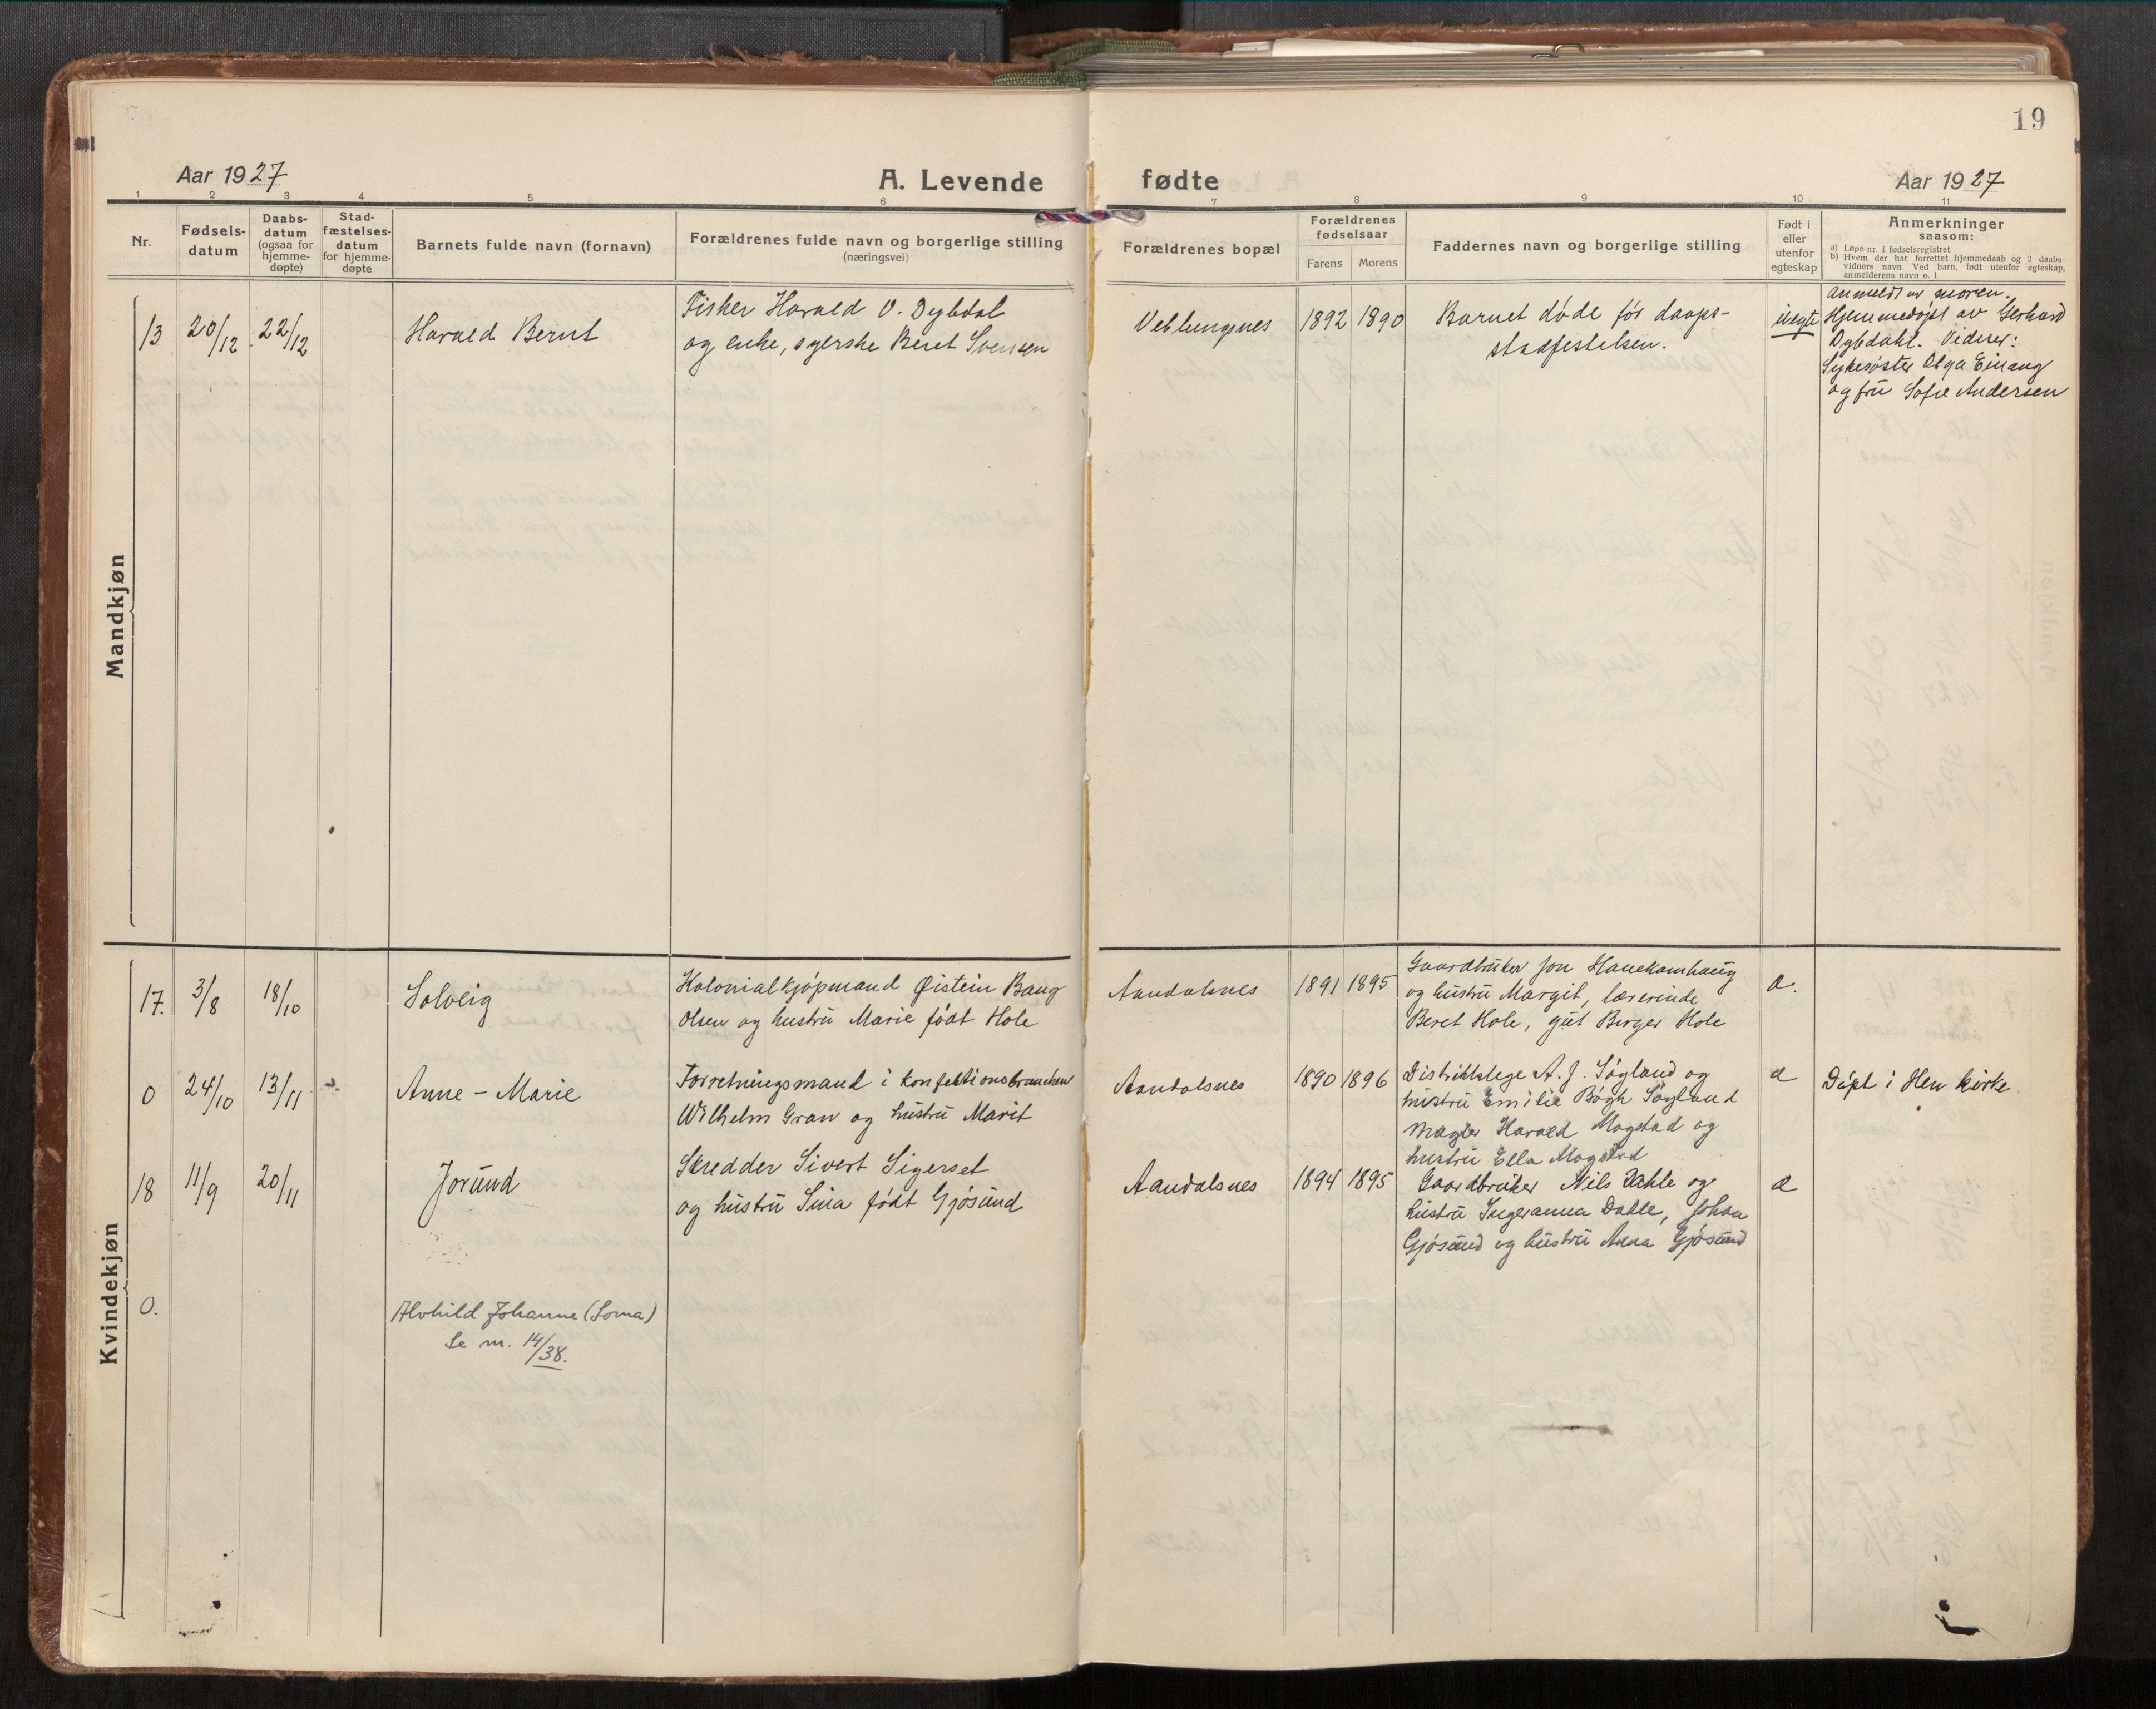 19
Aar 1927
A. Levende fødte
Aar 1927
1 2 3 4 5 6 7 8 9 10 11
Nr.
Fødsels-
datum
Daabs-
datum
(ogsaa for
hjemme-
døpte)
Stad-
fæstelses-
datum
for hjemme-
døpte
Barnets fulde navn (fornavn)
Forældrenes fulde navn og borgerlige stilling
(næringsvei)
Forældrenes bopæl
Forældrenes
fødselsaar
Farens Morens
Faddernes navn og borgerlige stilling
Født i
eller
utenfor
egteskap
Anmerkninger
saasom:
a) Løpe-nr. i fødselsregistret
b) Hvem der har forrettet hjemmedaab og 2 daabs-
vidners navn. Ved barn, født utenfor egteskap,
anmelderens navn o. l
Mandkjøn
13 20/12 22/12
Harald Bernt
Fisker Harald O. Dybdal
og enke, syerske Beret Svensen
Veblungsnes
1892 1890
Barnet døde før daaps-
stadfestelsen.
uegte
Anmeldt av moren.
Hjemmedøpt av Gerhard
Dybdahl. Vidner:
Sykesøster Olga Einang
og fru Sofie Andersen
Kvindekjøn
17. 3/8 18/10
Solveig
Kolonialkjøpmand Øistein Baug
Olsen og hustru Marie født Hole
Aandalsnes
1891 1895
Gaardbruker Jon Hanekamhaug
og hustru Margit, lærerinde
Beret Hole, gut Birger Hole
a.
0 24/10 13/11
Anne-Marie
Forretningsmand i konfektionsbranchen
Wilhelm Gran og hustru Marit
Aandalsnes
1890 1896
Distriktslege A. J. Søgland og
hustru Emilie Bøgh Søgland
Magnus Harald Mogstad og
hustru Ella Mogstad
a
Døpt i Hen kirke
18 11/9 20/11
Jorund
Skredder Sivert Sigerset
og hustru Sina født Gjøsund
Aandalsnes
1894 1895
Gaardbruker Nils Dahle og
hustru Ingeranna Dahle, Johan
Gjøsund og hustru Anna Gjøsund
a
0.
Alvhild Johanne (Soma)
Se m. 14/38.